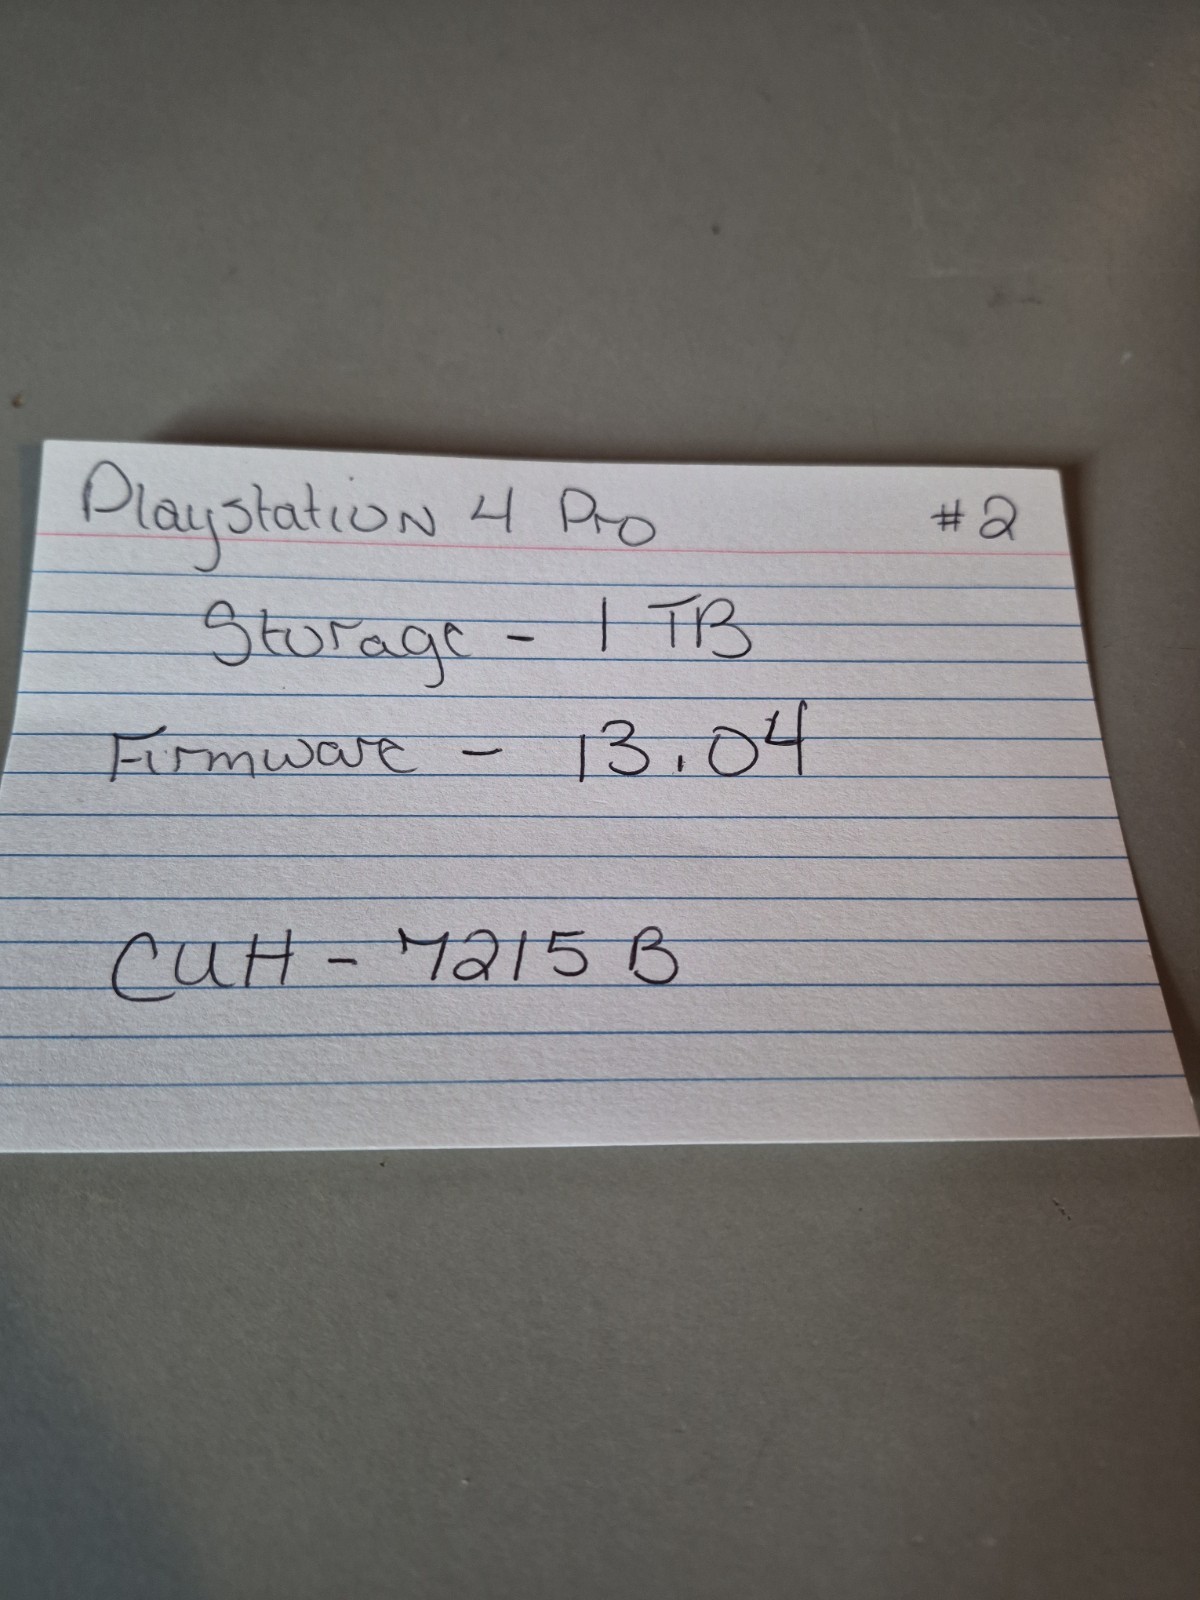 Playstation 4 Pro #2
Storage - 1 TB
Firmware - 13.04
CUH - 7215 B